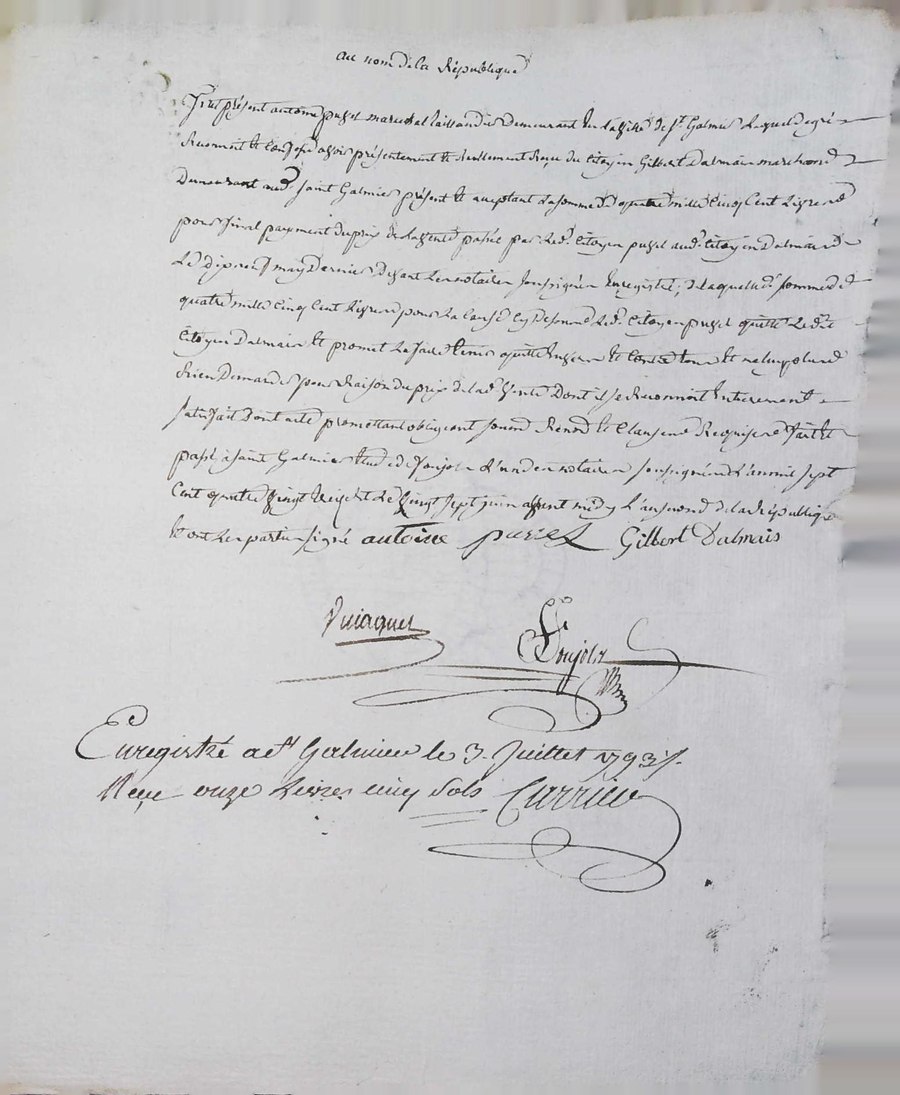 au nom de la République
fut présent antoine puzel marechal taillandier demeurant en la ville de St. Galmier lequel de gré
reconnoit et confesse avoir présentement et reellement reçu du citoyen Gilbert Dalmais marchand
demeurant aud. saint Galmier présent et acceptant la somme de quatre mille cinq cent livres
pour final payement du prix de la vente passée par led. citoyen puzel aud. citoyen Dalmais
le dix may dernier devant le notaire soussigné Enregistré; de laquelle somme de
quatre mille cinq cent livres pour la cause cy dessus led. citoyen puzel quitte led.
citoyen Dalmais et promet le faire tenir quitte envers et contre tous et ne luy plus
Rien demander pour raison du prix de lad. vente dont il se reconnoit Entierement
satisfait Dont acte promettant obligeant soumd. Renond. et clauses Requises fait et
passé à saint Galmier Etude de Poujola l'un des notaires soussignés l'an mil sept
cent quatre vingt treize et le vingt sept juin avant midy l'an second de la République
et ont les parties signé antoine puzel Gilbert Dalmais
Poujola
Enregistré a St Galmier le 3. Juillet 1793
Reçu onze Livres cinq sols